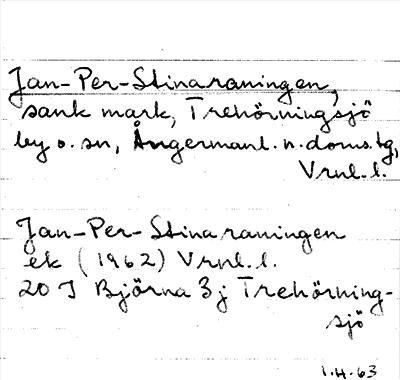 Jan-Per-Stinaraningen,
sank mark, Trehörningsjö
by o. sn, Ångermanl. n. doms.tg,
Vrnl. l.
Jan-Per-Stinaraningen
ek (1962) Vrnl. l.
20 I Björna 3j Trehörning-
sjö
1.H.63